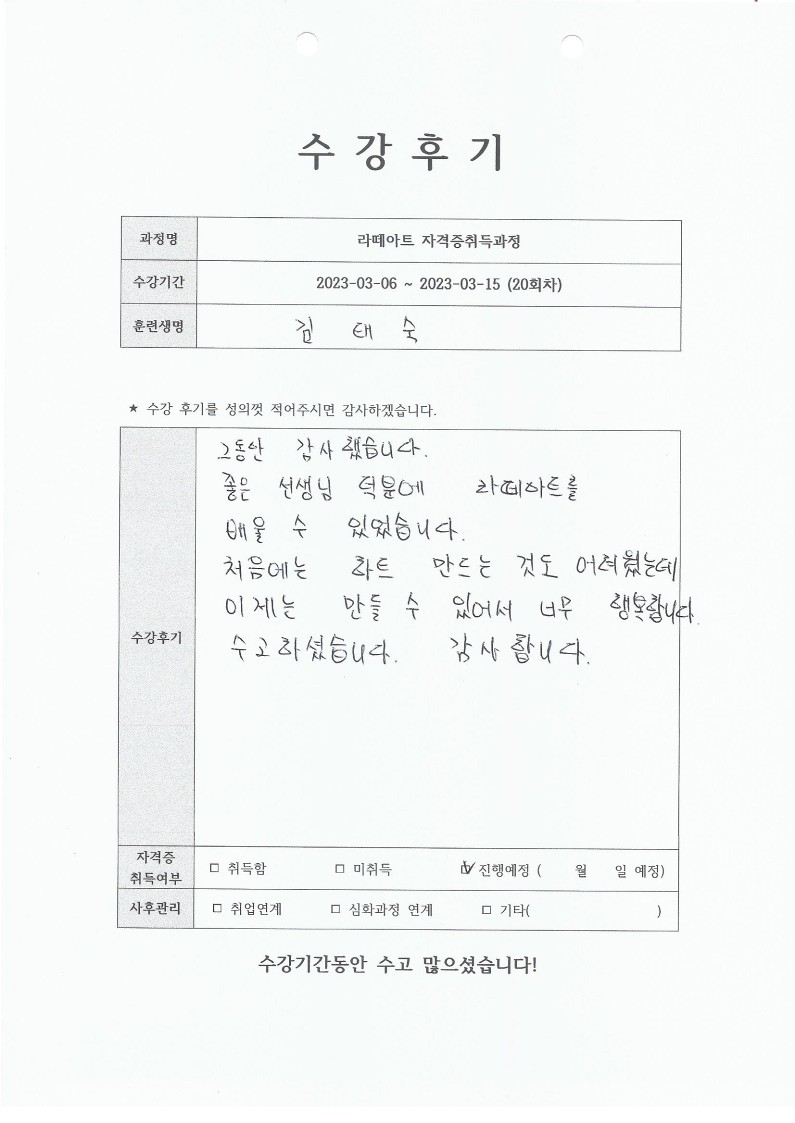 수 강 후 기
과정명 라떼아트 자격증취득과정
수강기간 2023-03-06 ~ 2023-03-15 (20회차)
훈련생명 김 태 숙
★ 수강 후기를 성의껏 적어주시면 감사하겠습니다.
수강후기
그동안 감사했습니다.
좋은 선생님 덕분에 라떼아트를
배울 수 있었습니다.
처음에는 하트 만드는 것도 어려웠는데
이제는 만들 수 있어서 너무 행복합니다.
수고하셨습니다. 감사합니다.
자격증
취득여부
□ 취득함 □ 미취득 ☑ 진행예정 ( 월 일 예정)
사후관리 □ 취업연계 □ 심화과정 연계 □ 기타( )
수강기간동안 수고 많으셨습니다!